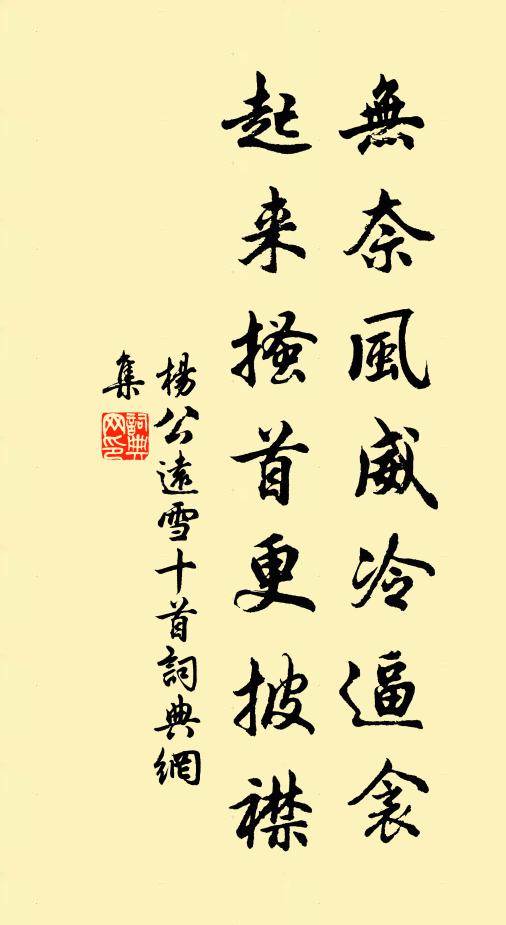 無奈風威冷逼衾
起来搔首更披襟
楊公遠雪十首詞典網
集
詞典
网印